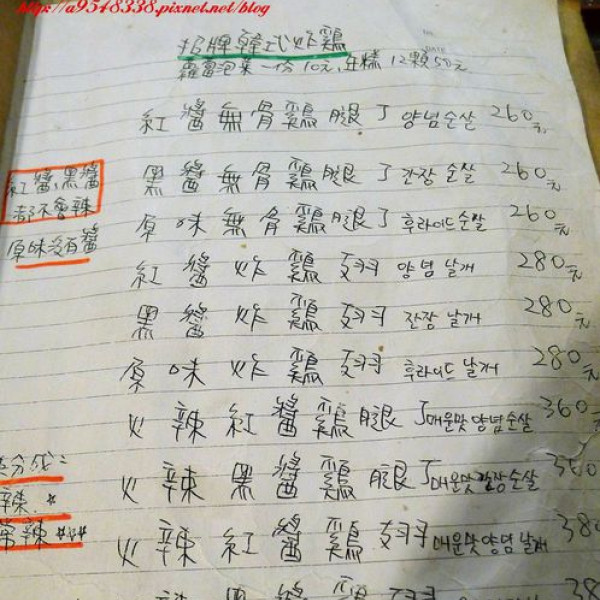 http://a9548338.pixnet.net/blog
DATE
招牌韓式炸鷄
蘿蔔泡菜一份10元,年糕12顆50元
紅醬無骨鷄腿丁 양념순살 260元
黑醬無骨鷄腿丁 간장순살 260元
原味無骨鷄腿丁 후라이드순살 260元
紅醬炸鷄翅 양념날개 280元
黑醬炸鷄翅 간장날개 280元
原味炸鷄翅 후라이드날개 280元
火辣紅醬鷄腿丁 매운맛양념순살 360元
火辣黑醬鷄腿丁 매운맛간장순살 360
火辣紅醬鷄翅 매운맛양념날개 380
紅醬,黑醬
都不會辣
原味沒有醬
分成=
辣 *
辣 ***